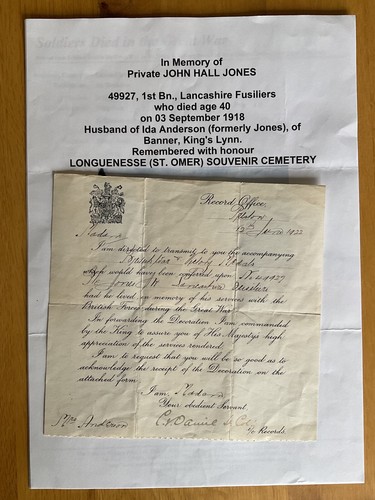 Soldiers Died in the Great War
In Memory of
Private JOHN HALL JONES
49927, 1st Bn., Lancashire Fusiliers
who died age 40
on 03 September 1918
Husband of Ida Anderson (formerly Jones), of
Banner, King's Lynn.
Remembered with honour
LONGUENESSE (ST. OMER) SOUVENIR CEMETERY
Record Office,
Preston
1922
Madam
I am directed to transmit to you the accompanying
British War & Victory Medals
which would have been conferred upon 49927
Jones Lancashire Fusiliers
had he lived in memory of his services with the
British Forces during the Great War.
In forwarding the Decoration I am commanded
by the King to assure you of His Majesty's high
appreciation of the services rendered.
I am to request that you will be so good as to
acknowledge the receipt of the Decoration on the
attached form.
I am, Madam
Your obedient Servant,
Daniel
i/c Records.
Mrs Anderson